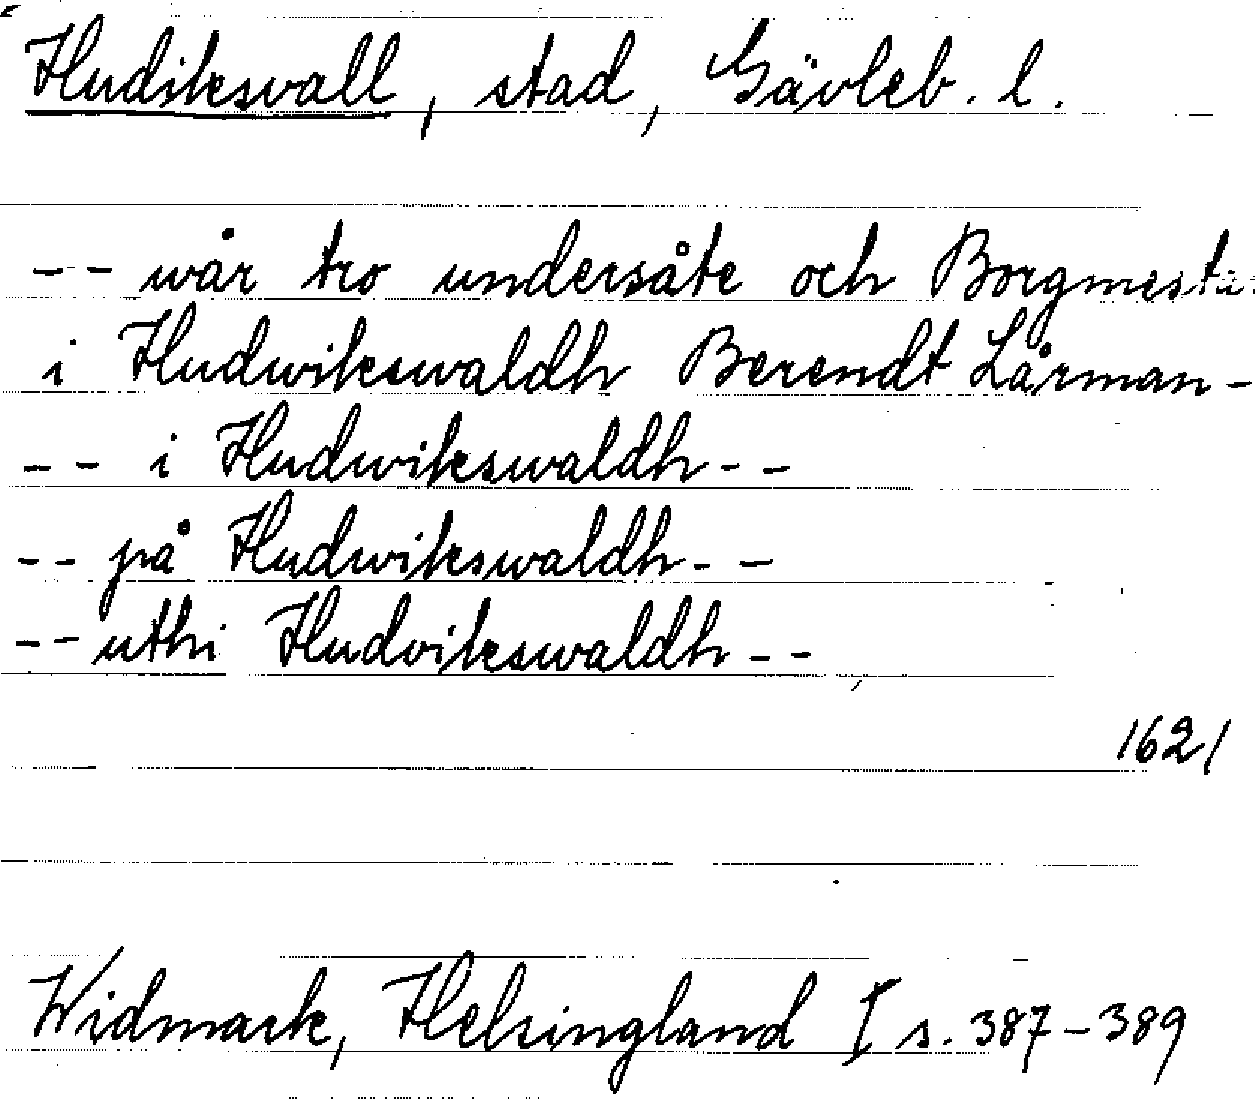 Hudiksvall, stad, Gävleb. l.
-- wår tro undersåte och Borgmest
i Hudwikswaldh Berendt Lårman -
-- i Hudwikswaldh --
-- på Hudwikswaldh --
-- uthi Hudvikswaldh --
1621
Widmark, Helsingland I s. 387-389